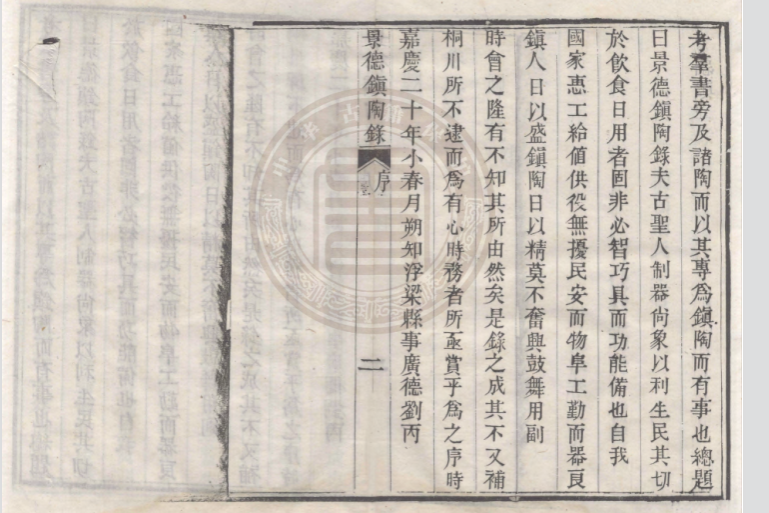 考羣書旁及諸陶而以其專爲鎭陶而有事也總題
曰景德鎭陶錄夫古聖人制器尙象以利生民其切
於飮食日用者固非必智巧具而功能備也自我
國家惠工給値供役無擾民安而物阜工勤而器良
鎭人日以盛鎭陶日以精莫不奮興鼓舞用副
時會之隆有不知其所由然矣是錄之成其不又補
桐川所不逮而爲有心時務者所亟賞乎爲之序時
嘉慶二十年小春月朔知浮梁縣事廣德劉丙
景德鎭陶錄 序 二